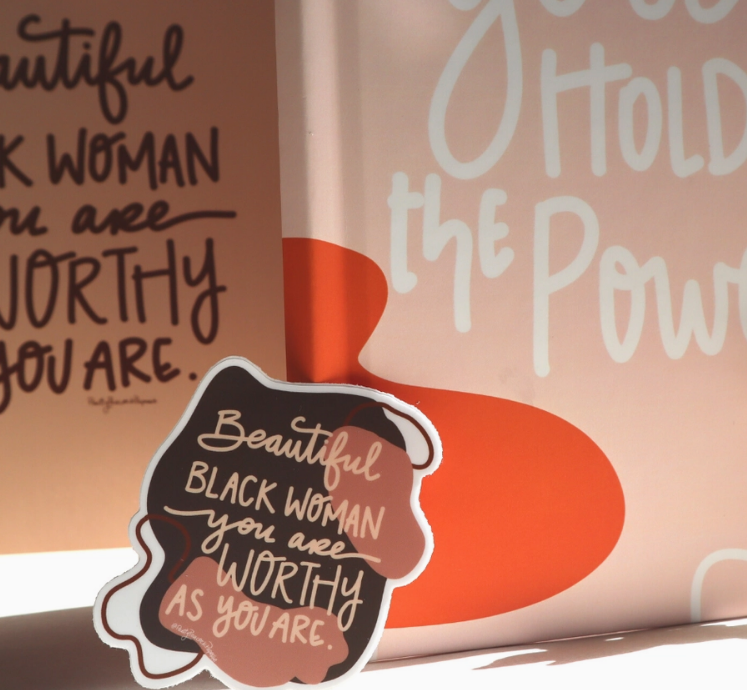 autiful
K WOMAN
ou are
WORTHY
YOU ARE.
you
HOLD
the
Powe
Beautiful
BLACK WOMAN
you are
WORTHY
AS YOU ARE.